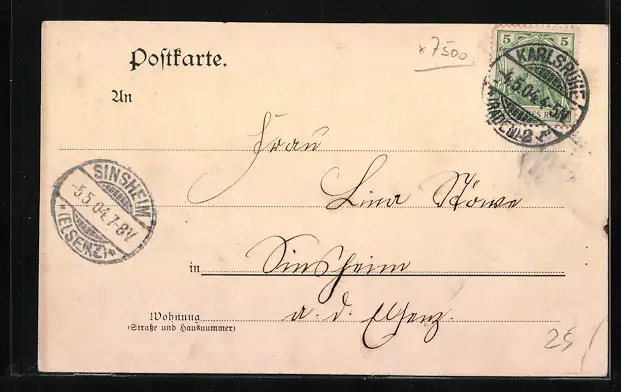 Postkarte.
× 7500
5 5
KARLSRUHE
4.5.04.4-5N
(BADEN) 2
An
Frau
Lina Stöwe
SINSHEIM
5.5.04.7-8V
*(ELSENZ)*
in Sinsheim
a. d. Elsenz.
Wohnung
(Straße und Hausnummer)
25